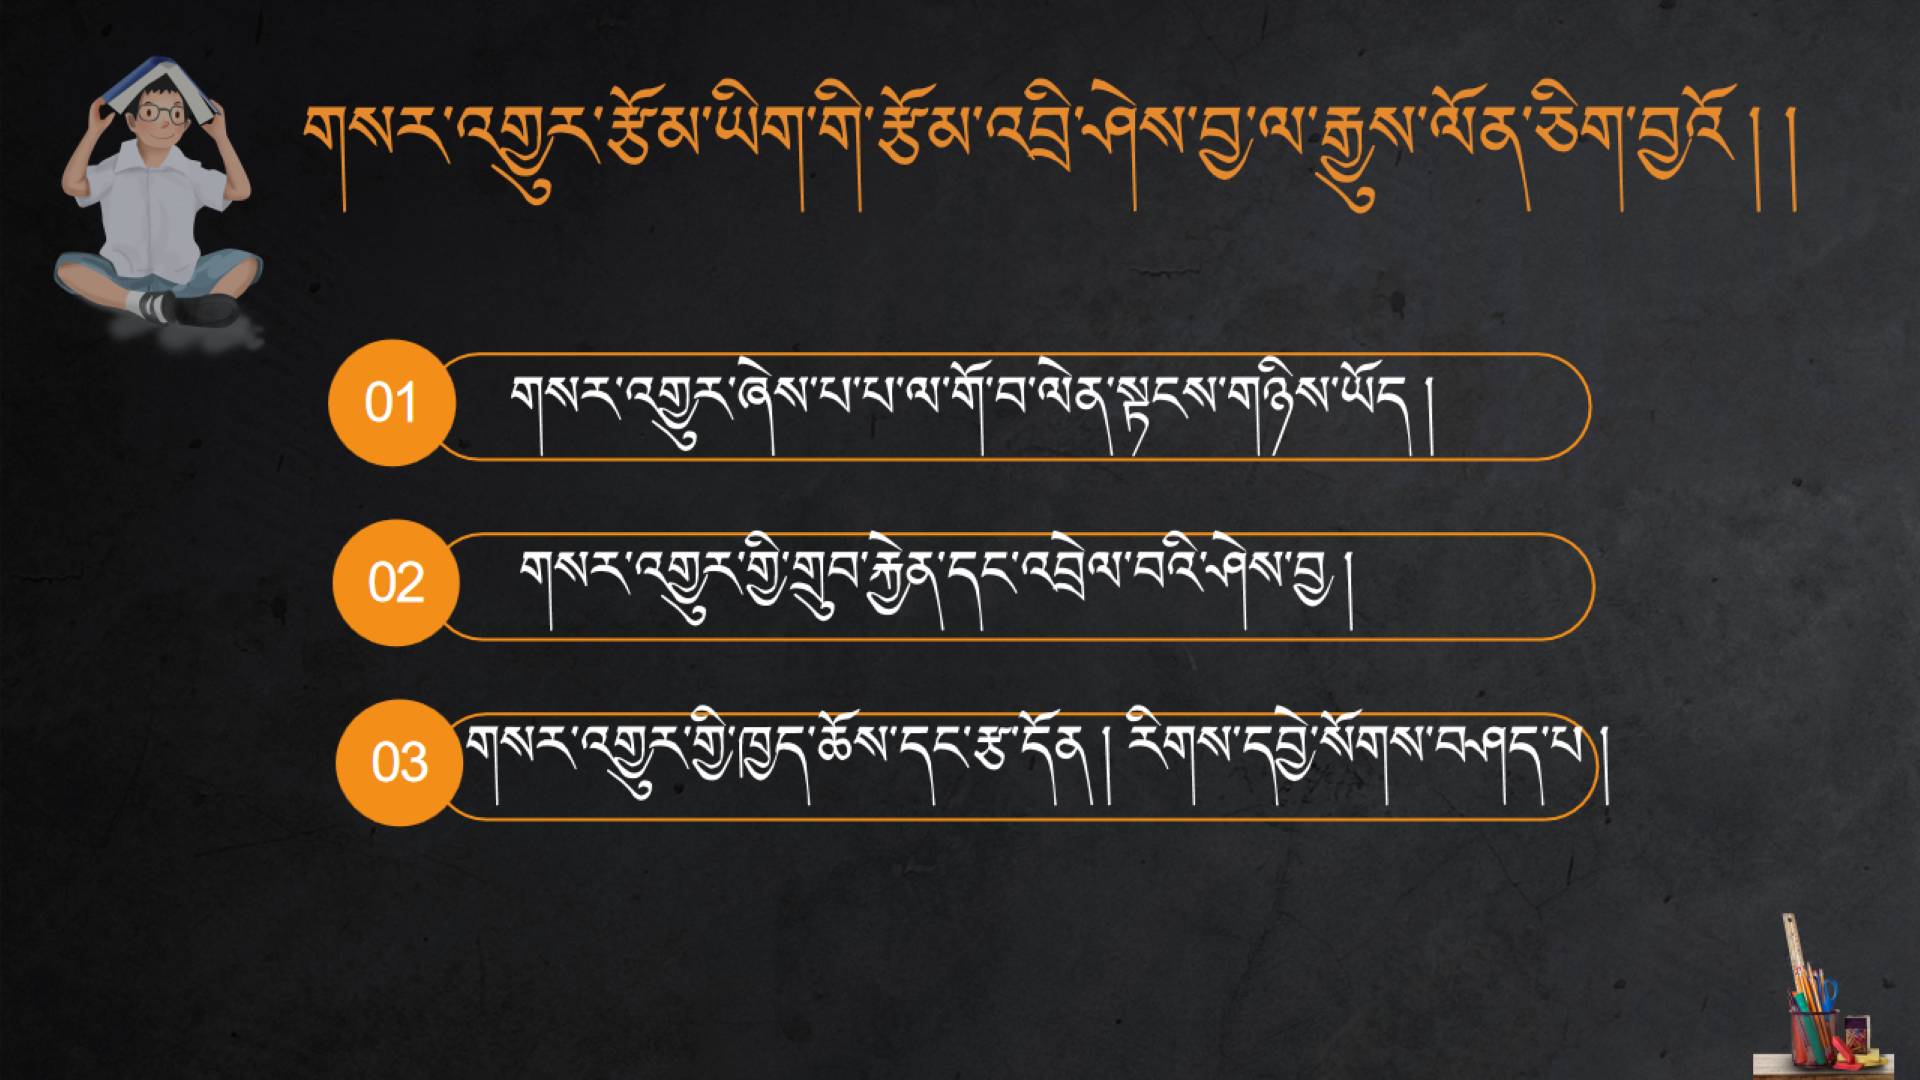 གསར་འགྱུར་རྩོམ་ཡིག་གི་རྩོམ་འབྲི་ཤེས་བྱ་ལ་རྒྱུས་ལོན་ཅིག་བྱའོ། །
01 གསར་འགྱུར་ཞེས་པ་པ་ལ་གོ་བ་ལེན་སྟངས་གཉིས་ཡོད།
02 གསར་འགྱུར་གྱི་གྲུབ་རྐྱེན་དང་འབྲེལ་བའི་ཤེས་བྱ།
03 གསར་འགྱུར་གྱི་ཁྱད་ཆོས་དང་རྩ་དོན། རིགས་དབྱེ་སོགས་བཤད་པ།